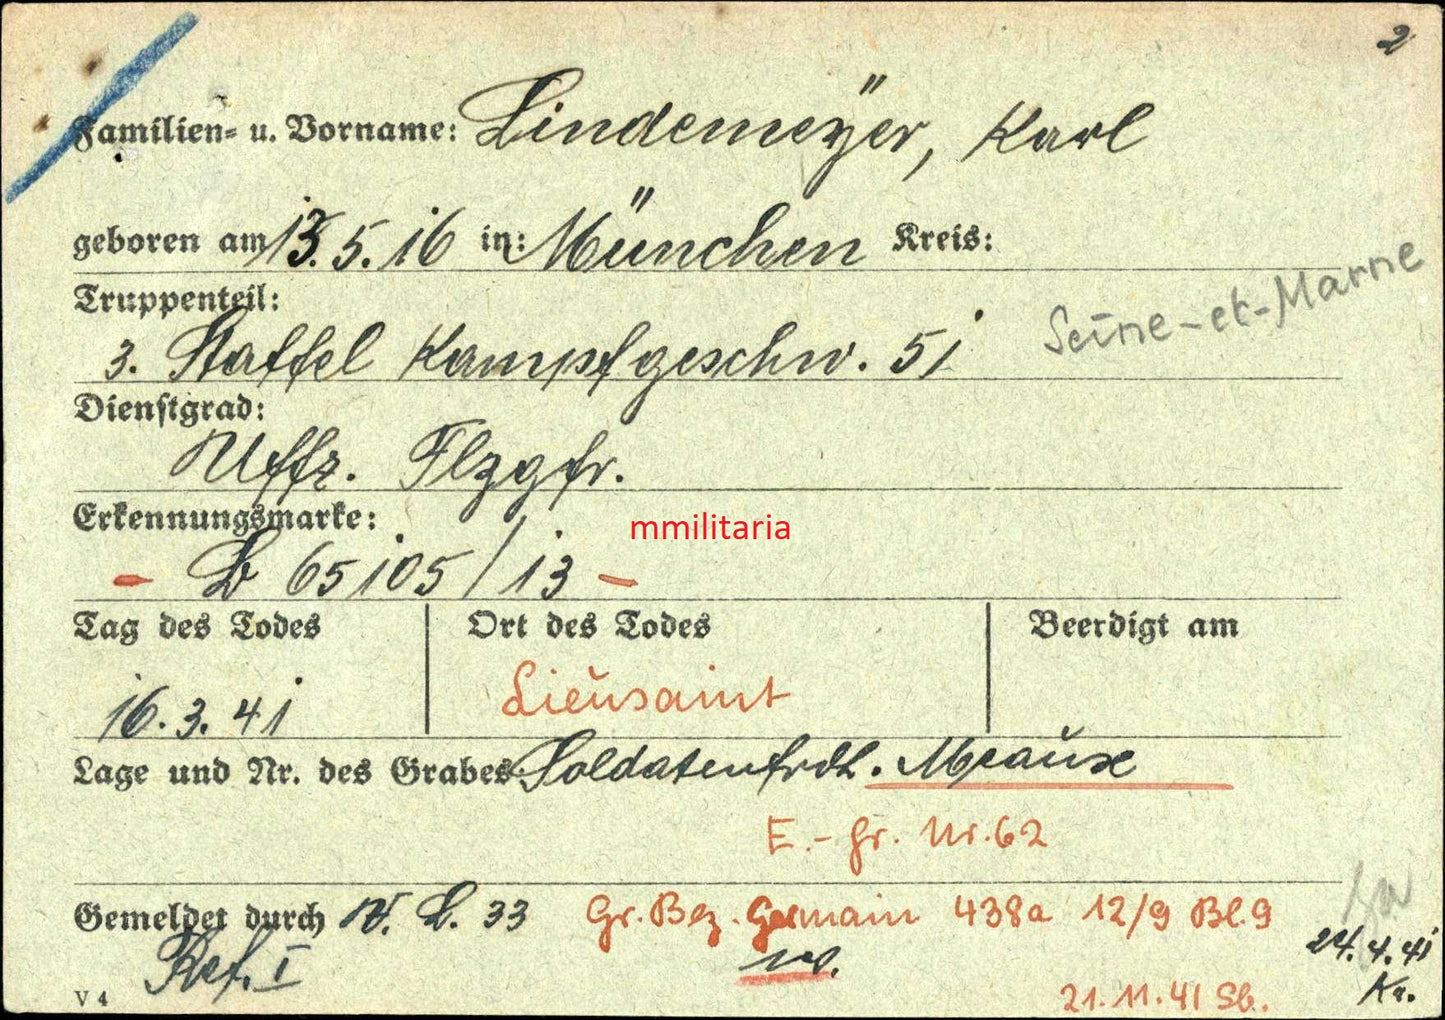 2
Familien= u. Vorname: Lindemeÿer, Karl
geboren am 13.5.16 in: München Kreis:
Truppenteil:
Seine-et-Marne
3. Staffel Kampfgeschw. 51
Dienstgrad:
Uffz. Flzgfr.
Erkennungsmarke:
mmilitaria
- B 65105/13 -
Tag des Todes Ort des Todes Beerdigt am
16.3.41 Lieusaint
Lage und Nr. des Grabes Soldatenfrdh. Meaux
E.-Gr. Nr. 62
Gemeldet durch V. L. 33 Gr. Bez. Germain 438a 12/9 Bl. 9
Ref. I w. 24.4.41
Kr.
V 4 21.11.41 Sb.